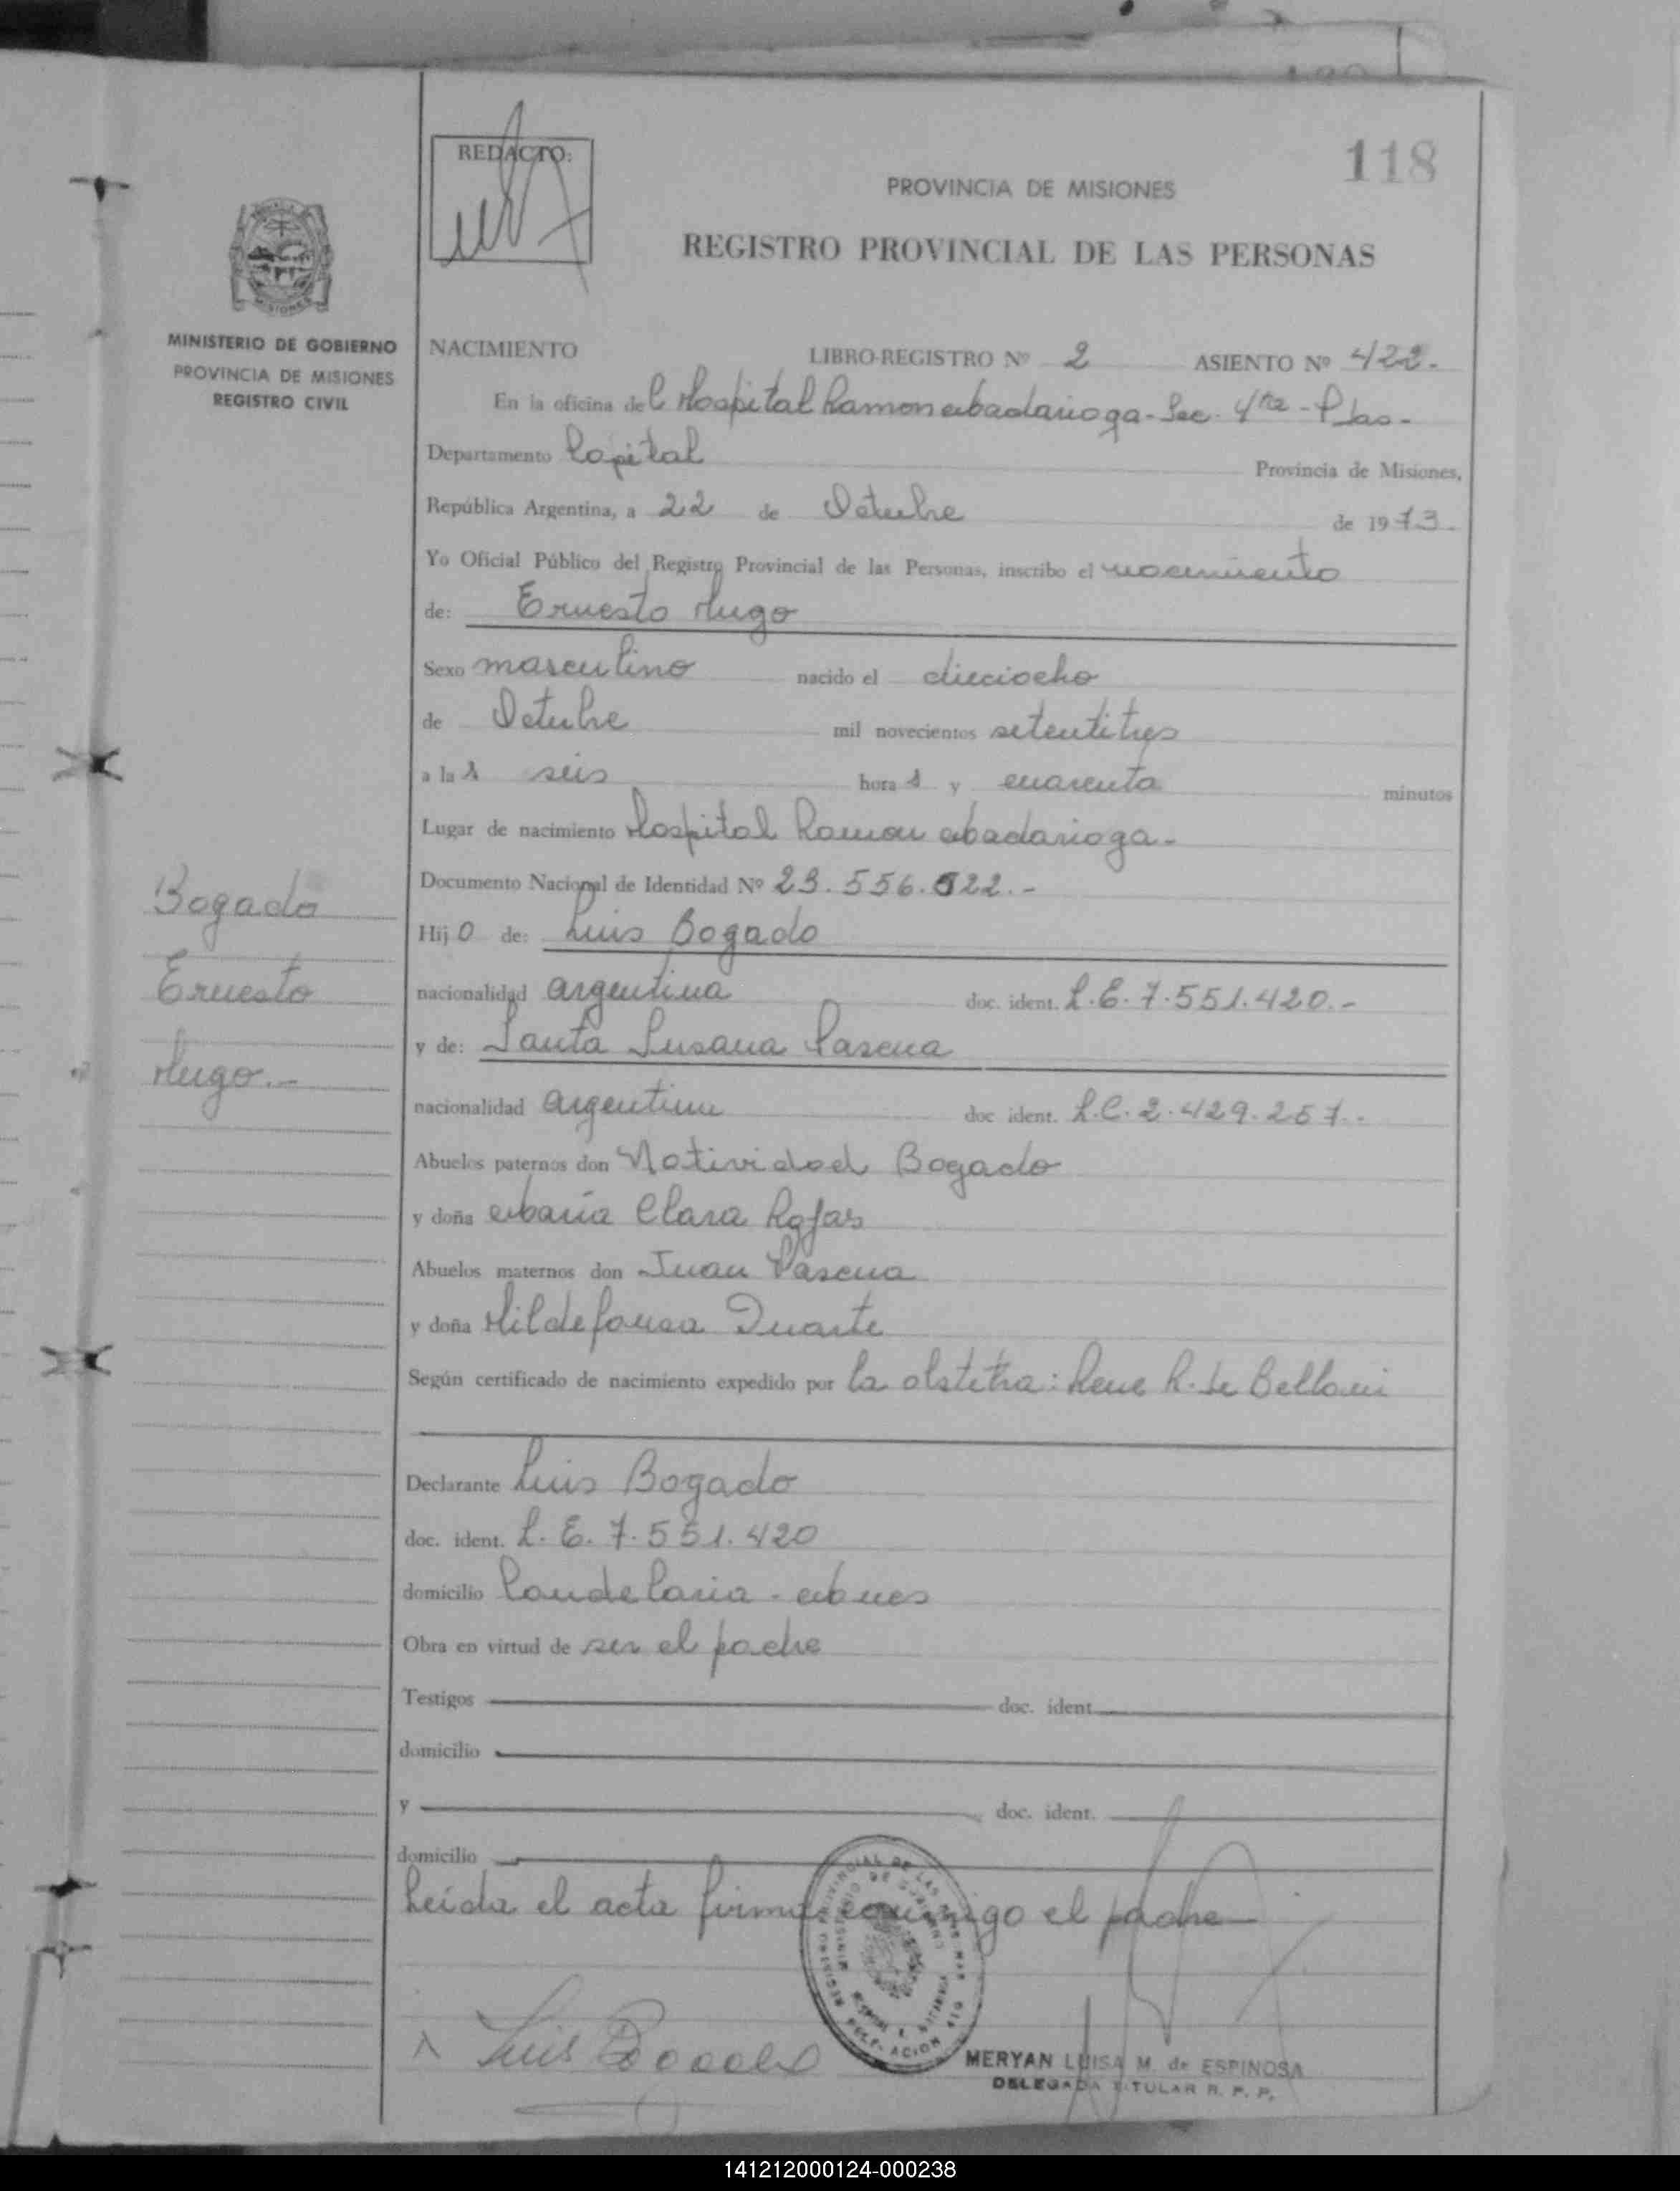 118
REDACTO:
PROVINCIA DE MISIONES
REGISTRO PROVINCIAL DE LAS PERSONAS
MISIONES
MINISTERIO DE GOBIERNO
PROVINCIA DE MISIONES
REGISTRO CIVIL
NACIMIENTO LIBRO-REGISTRO Nº 2 ASIENTO Nº 422.-
En la oficina del Hospital Ramon Madariaga - Sec. 4ta - Pdas-
Departamento Capital Provincia de Misiones,
República Argentina, a 22 de Octubre de 1973.
Yo Oficial Público del Registro Provincial de las Personas, inscribo el nacimiento
de: Ernesto Hugo
Sexo masculino nacido el dieciocho
de Octubre mil novecientos setentitres
a las seis horas y cuarenta minutos
Lugar de nacimiento Hospital Ramon Madariaga.-
Documento Nacional de Identidad Nº 23.556.522.-
Hijo de: Luis Bogado
nacionalidad argentina doc. ident. L.E. 7.551.420.-
y de: Santa Susana
nacionalidad argentina doc ident. L.C. 2.429.257.-
Abuelos paternos don Natividad Bogado
y doña Maria Clara Rojas
Abuelos maternos don Juan
y doña Hildefonsa Duarte
Según certificado de nacimiento expedido por la obstetra: Rene R. de
Declarante Luis Bogado
doc. ident. L.E. 7.551.420
domicilio Candelaria - Mnes
Obra en virtud de ser el padre
Testigos doc. ident.
domicilio
y doc. ident.
domicilio
Leida el acta firma conmigo el padre
Luis Bogado
MERYAN LUISA M. de ESPINOSA
DELEGADA TITULAR R. P. P.
Bogado
Ernesto
Hugo.-
141212000124-000238